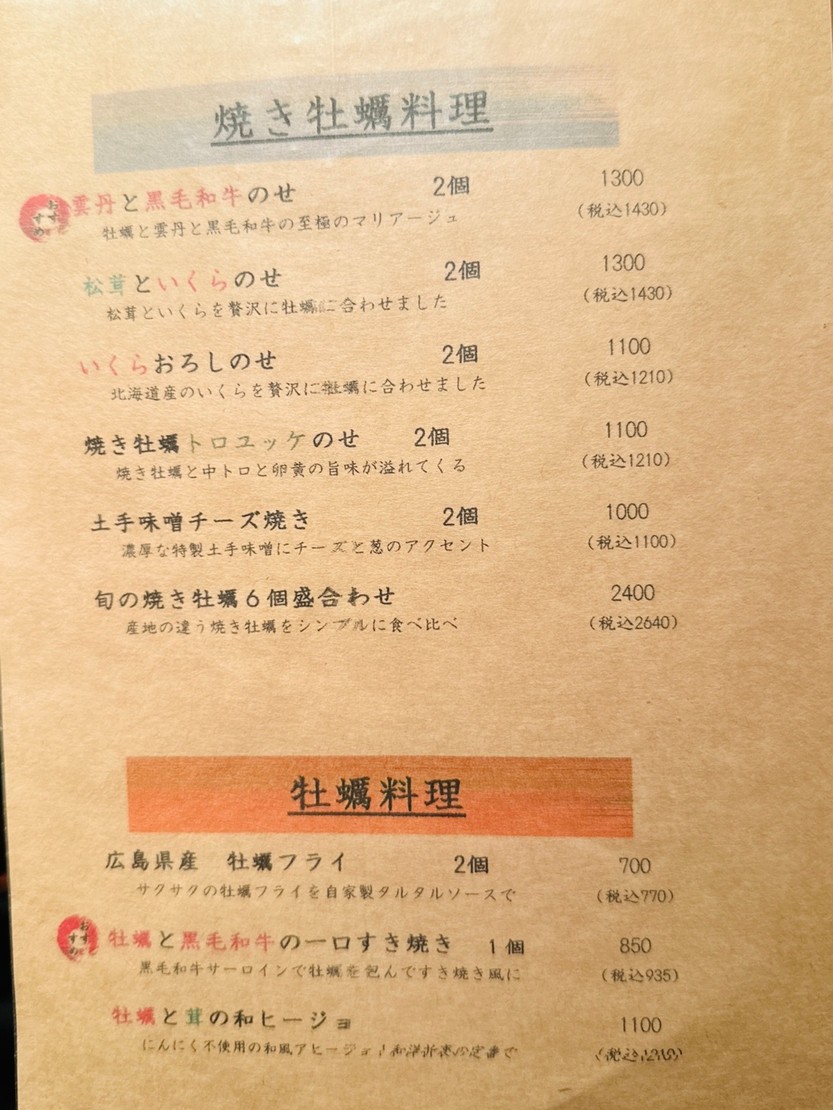 焼き牡蠣料理
おすすめ
雲丹と黒毛和牛のせ 2個 1300
牡蠣と雲丹と黒毛和牛の至極のマリアージュ (税込1430)
松茸といくらのせ 2個 1300
松茸といくらを贅沢に牡蠣に合わせました (税込1430)
いくらおろしのせ 2個 1100
北海道産のいくらを贅沢に牡蠣に合わせました (税込1210)
焼き牡蠣トロユッケのせ 2個 1100
焼き牡蠣と中トロと卵黄の旨味が溢れてくる (税込1210)
土手味噌チーズ焼き 2個 1000
濃厚な特製土手味噌にチーズと葱のアクセント (税込1100)
旬の焼き牡蠣6個盛合わせ 2400
産地の違う焼き牡蠣をシンプルに食べ比べ (税込2640)
牡蠣料理
広島県産 牡蠣フライ 2個 700
サクサクの牡蠣フライを自家製タルタルソースで (税込770)
おすすめ
牡蠣と黒毛和牛の一口すき焼き 1個 850
黒毛和牛サーロインで牡蠣を包んですき焼き風に (税込935)
牡蠣と茸の和ヒージョ 1100
にんにく不使用の和風アヒージョ!和洋折衷の定番で (税込1210)